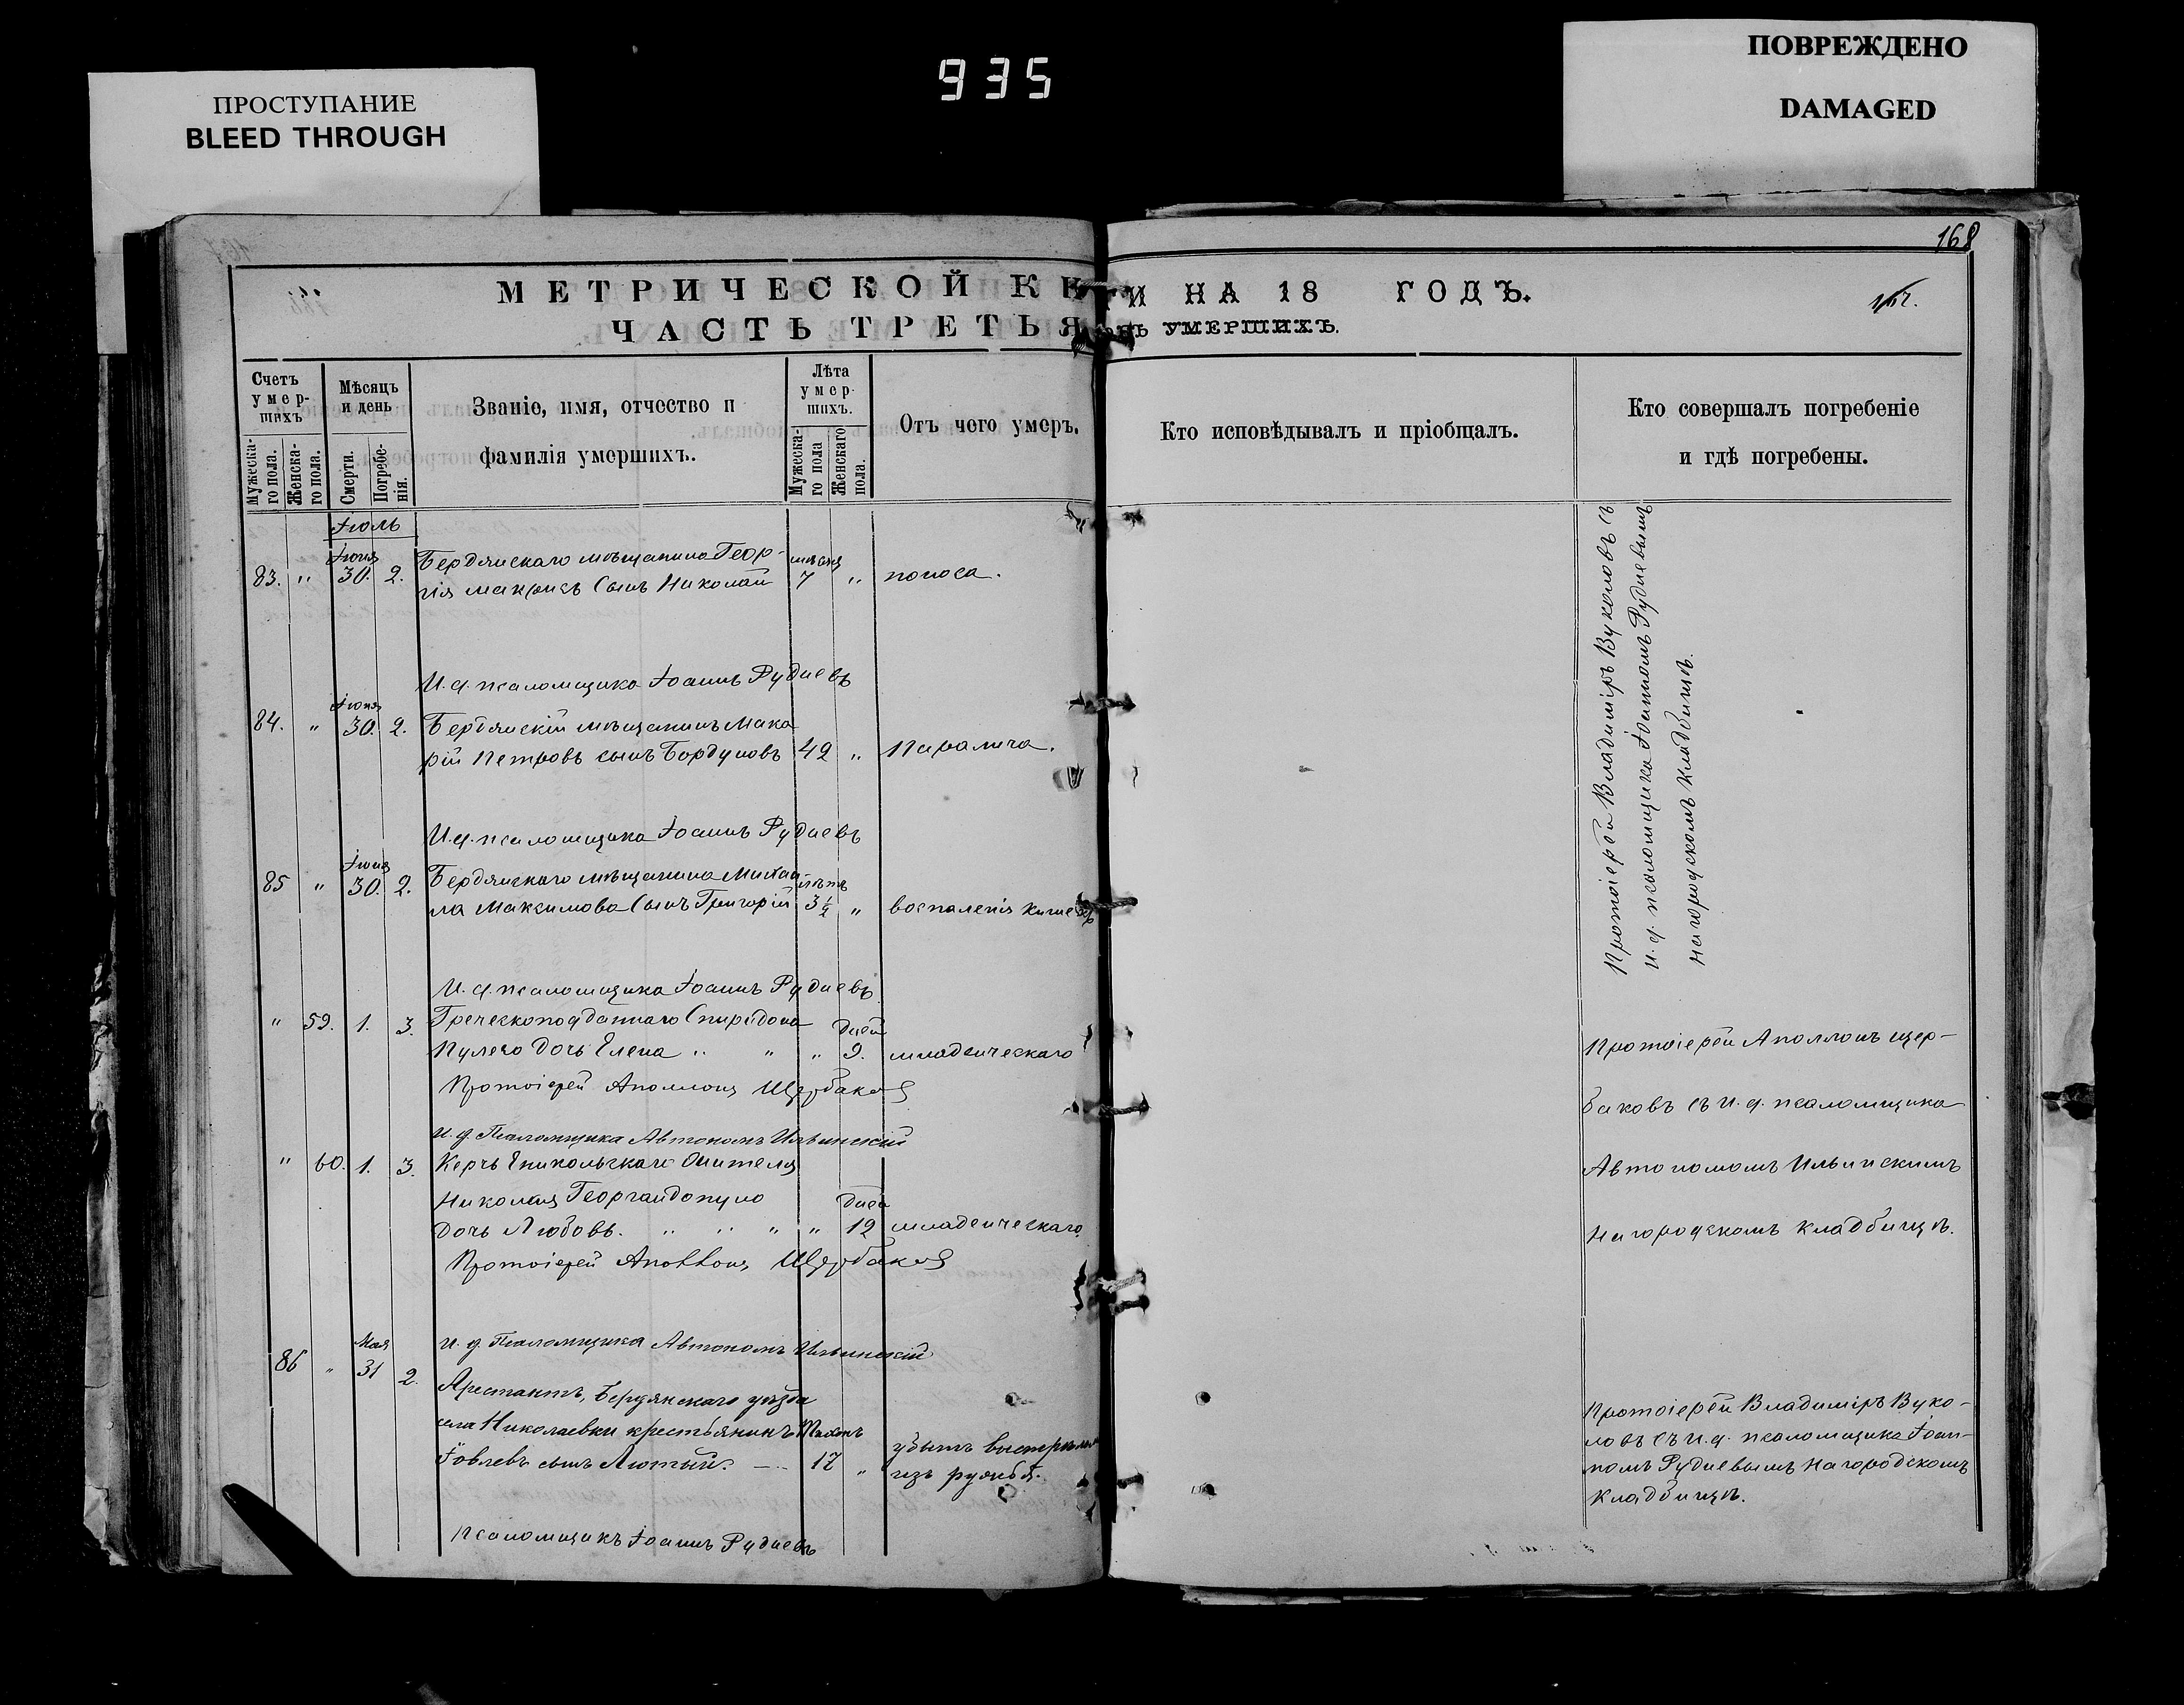 935
ПРОСТУПАНИЕ
BLEED THROUGH
ПОВРЕЖДЕНО
DAMAGED
168
МЕТРИЧЕСКОЙ КН
ГИ НА 18 ГОДЪ.
ЧАСТЬ ТРЕТЬЯ
УМЕРШИХЪ.
Счетъ умершихъ
Мужескаго пола.
Женскаго пола.
Мѣсяцъ и день
Смерти.
Погребенія.
Званіе, имя, отчество и
фамилія умершихъ.
Лѣта умершихъ.
Мужескаго пола
Женскаго пола.
Отъ чего умеръ.
Кто исповѣдывалъ и пріобщалъ.
Кто совершалъ погребеніе
и гдѣ погребены.
Іюль
Іюня
83. " 30. 2. Бердянскаго мѣщанина Геор-
гія Сынъ Николай 7 " поноса.
И.д. псаломщика Іоаннъ Рудневъ
Іюня
84. " 30. 2. Бердянскій мѣщанинъ Мака
рій Петровъ сынъ Бордуновъ 42 " Паралича.
И.д. псаломщика Іоаннъ Рудневъ
Іюня
85 " 30. 2. Бердянскаго мѣщанина Михаи-
лѣтъ
ла Максимова Сынъ Григорій 3½ " воспаленія кишекъ
И.д. псаломщика Іоаннъ Рудневъ
Протоіерей Владиміръ Вуколовъ съ
и.д. псаломщика Іоанномъ Рудневымъ
на городскомъ кладбищѣ.
" 59. 1. 3. Греческоподданнаго Спиридона
дней
Пулево дочь Елена " " " 9. младенческаго
Протоіерей Аполлонъ Щербаковъ
и.д. Псаломщика Автономъ Ильинскій
Протоіерей Аполлонъ Щер-
баковъ съ и.д. псаломщика
Автономомъ Ильинскимъ
на городскомъ кладбищѣ.
" 60. 1. 3. Керчь Еникольскаго
Николая Георгандопуло
дней
дочь Любовь. " " " " 12 младенческаго
Протоіерей Аполлонъ Щербаковъ
и.д. Псаломщика Автономъ Ильинскій
Мая
86 " 31 2.
Арестантъ, Бердянскаго уѣзда
села Николаевки крестьянинъ Тихонъ
Іовлевъ сынъ Лютый. — 17 "
убитъ выстрѣломъ
изъ ружья.
Псаломщикъ Іоаннъ Рудневъ
Протоіерей Владиміръ Вуко-
ловъ съ и.д. псаломщика Іоан-
номъ Рудневымъ на городскомъ
кладбищѣ.